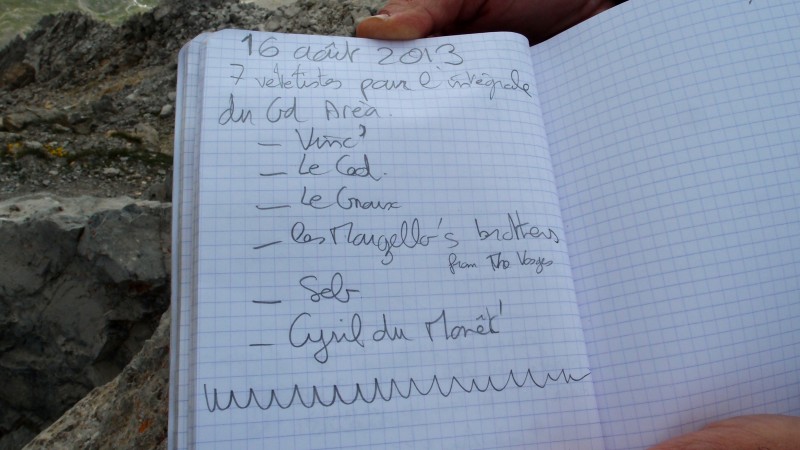 16 août 2013
7 vététistes pour l'intégrale
du Gd Aréa.
— Vinc'
— Le Cad.
— Le Gnoux
— les Margello's brothers
from The Vosges
— Seb
— Cyril du Monêt'